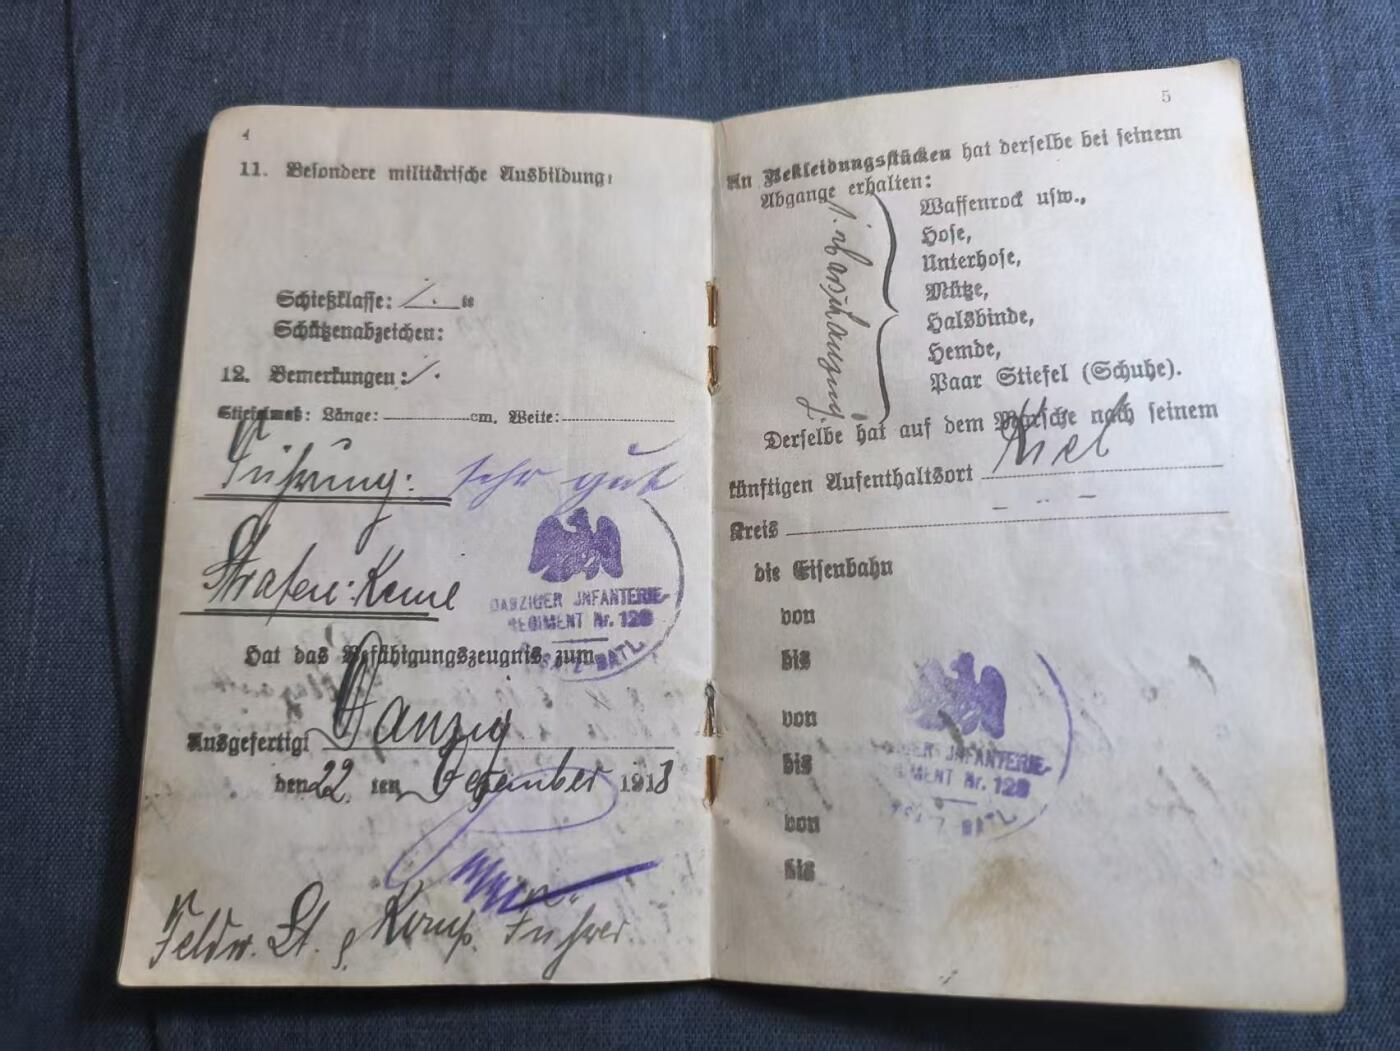 4
11. Besondere militärische Ausbildung:
Schießklasse:
Schützenabzeichen:
12. Bemerkungen: /.
Stiefelmaß: Länge: cm, Weite:
Führung: sehr gut
Strafen: Keine
DANZIGER INFANTERIE-
REGIMENT Nr. 128
ERSATZ-BATL.
Hat das Befähigungszeugnis zum
Ausgefertigt Danzig
den 22 ten Dezember 1918
Feldw. Lt. & Komp. Führer
5
An Bekleidungsstücken hat derselbe bei seinem
Abgange erhalten:
Waffenrock usw.,
Hose,
Unterhose,
Mütze,
Halsbinde,
Hemde,
Paar Stiefel (Schuhe).
Derselbe hat auf dem Marsche nach seinem
künftigen Aufenthaltsort Kiel
Kreis
die Eisenbahn
von
bis
von
bis
von
bis
DANZIGER INFANTERIE-
REGIMENT Nr. 128
ERSATZ-BATL.